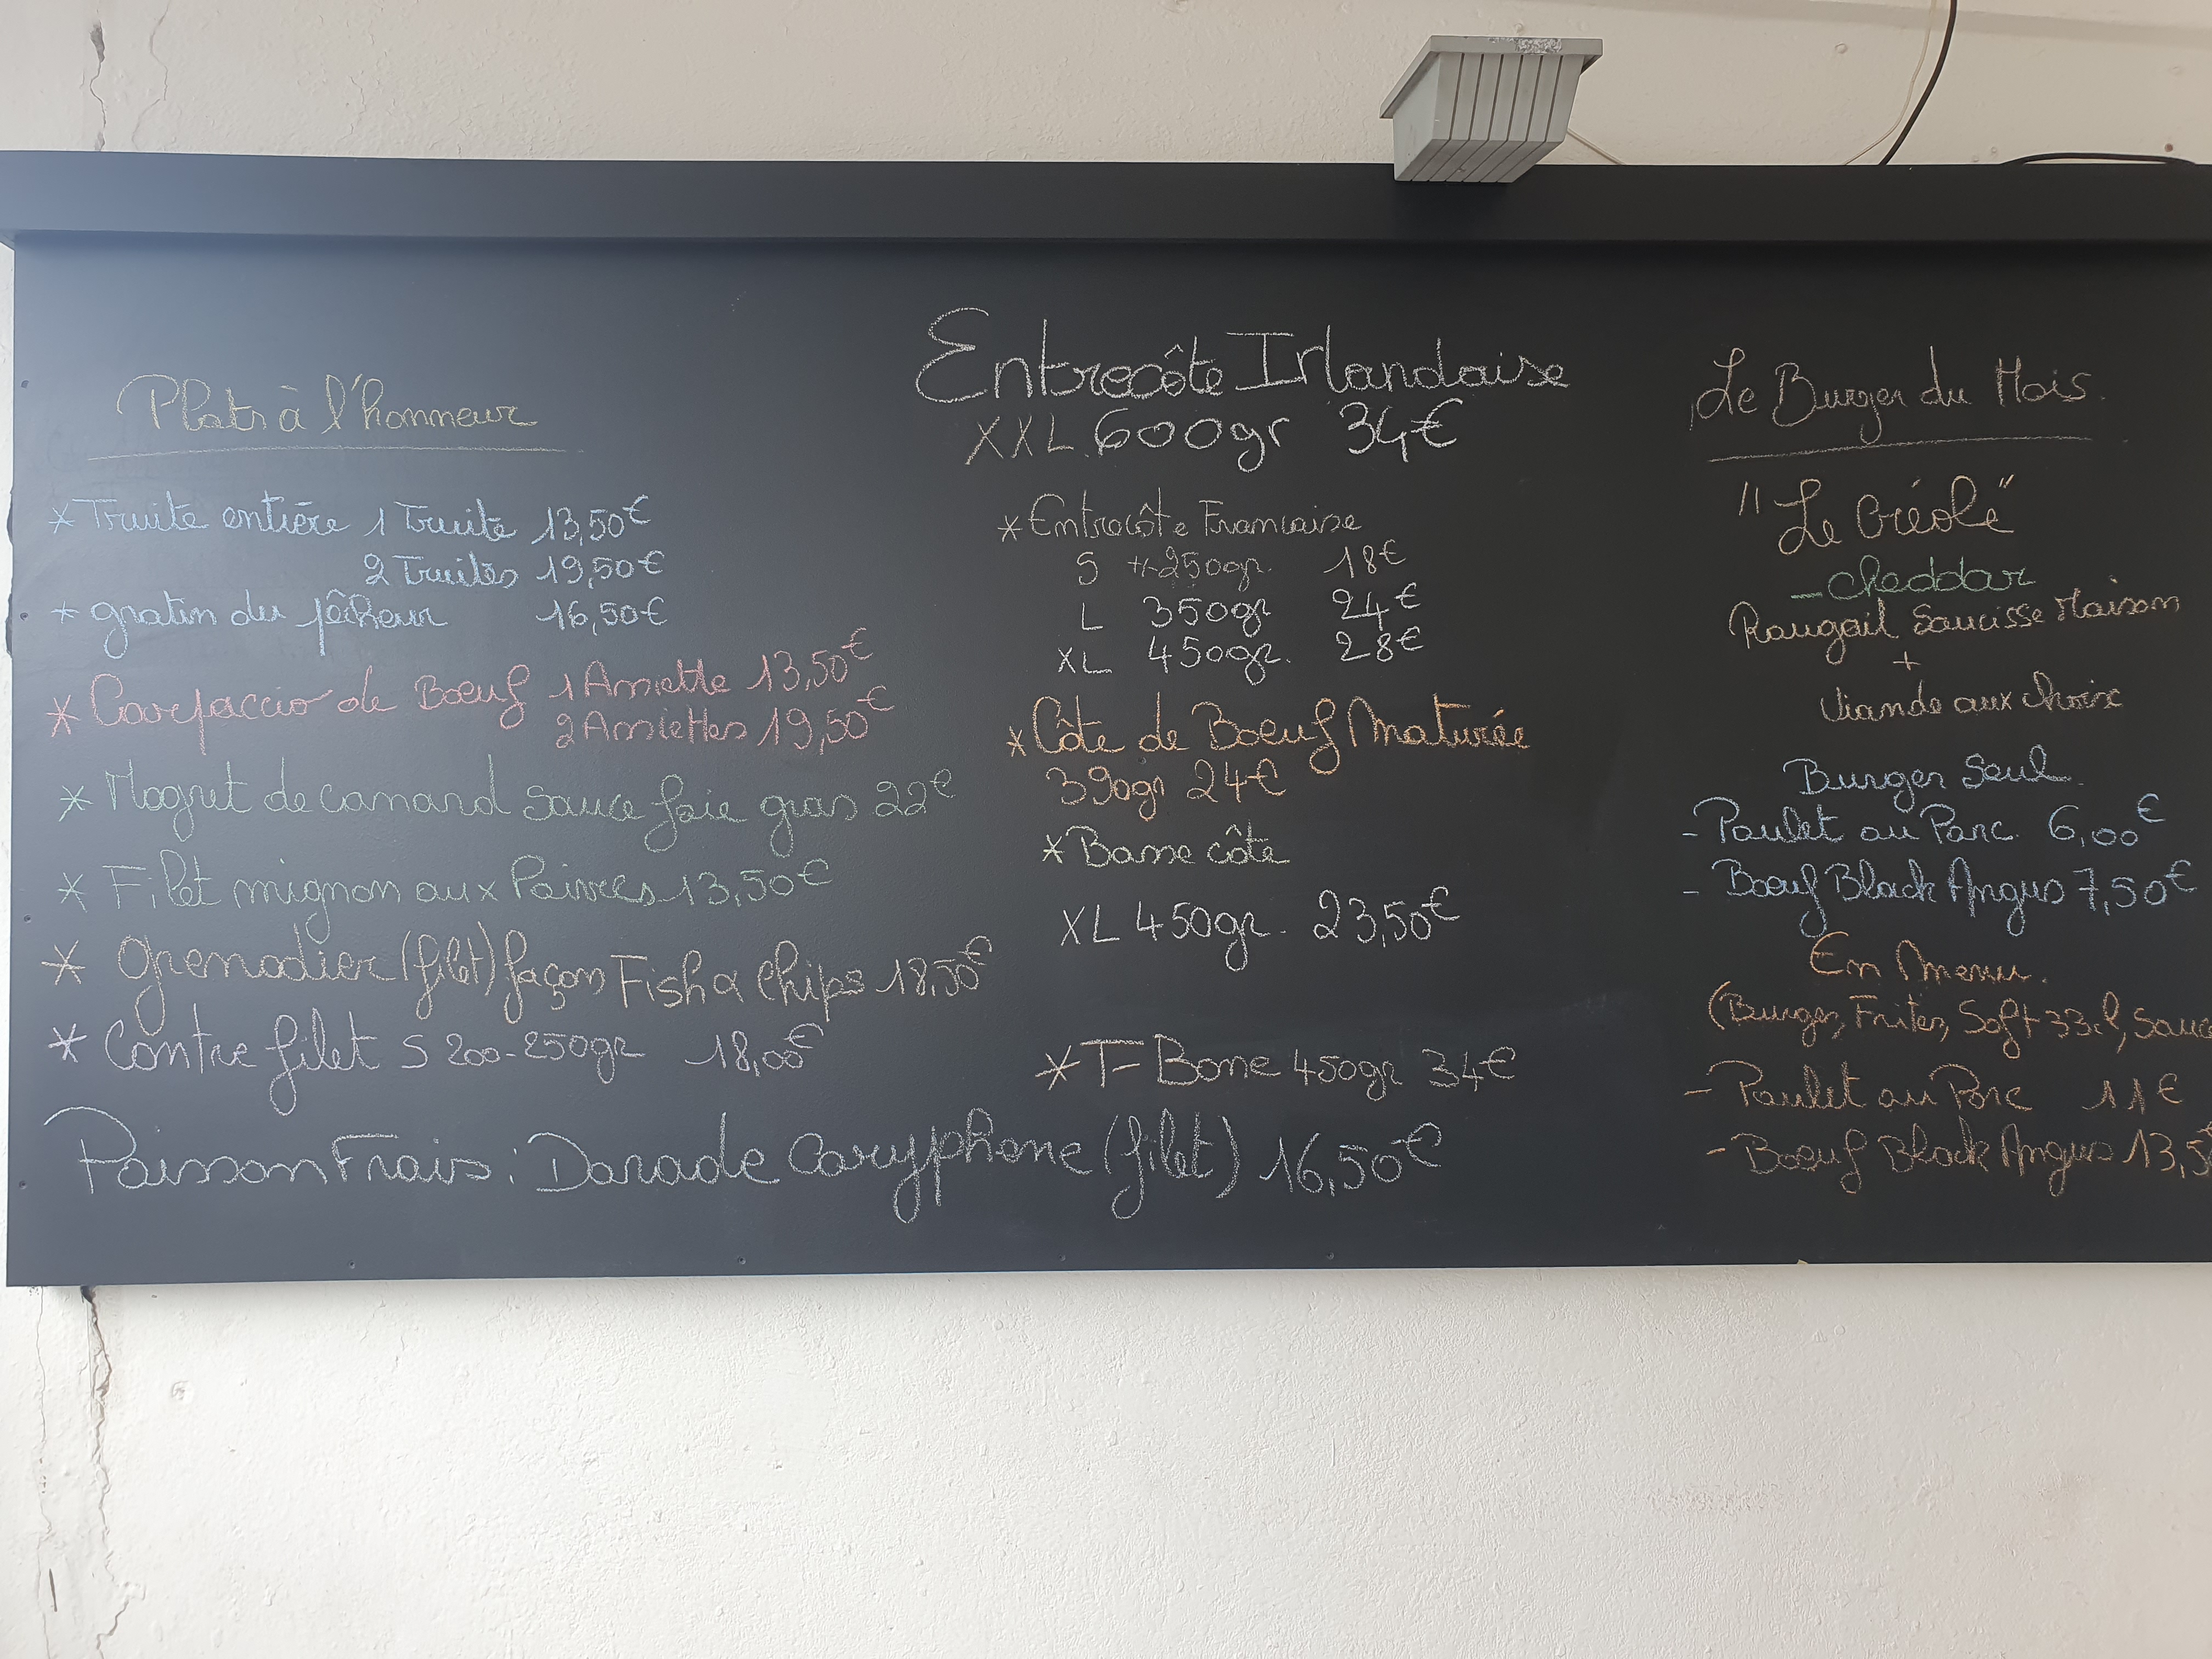 Plats à l'honneur
* Truite entière 1 Truite 13,50€
2 Truites 19,50€
* gratin du pêcheur 16,50€
* Carpaccio de Boeuf 1 Assiette 13,50€
2 Assiettes 19,50€
* Magret de canard sauce foie gras 22€
* Filet mignon aux Poivres 13,50€
* Grenadier (filet) façon Fish & Chips 18,50€
* Contre filet S 200-250gr 18,00€
Poisson Frais : Dorade Coryphène (filet) 16,50€
Entrecôte Irlandaise
XXL 600gr 34€
* Entrecôte Francaise
S +-250gr. 18€
L 350gr 24€
XL 450gr. 28€
* Côte de Boeuf Maturée
390gr 24€
* Basse côte
XL 450gr. 23,50€
* T-Bone 450gr 34€
Le Burger du Mois.
"Le Créole"
- Cheddar
Rougail Saucisse Maison
+
Viande aux choix
Burger Seul.
- Poulet ou Porc. 6,00€
- Boeuf Black Angus 7,50€
En Menu.
(Burger, Frites, Soft 33cl, Sauce
- Poulet ou Porc 11€
- Boeuf Black Angus 13,5